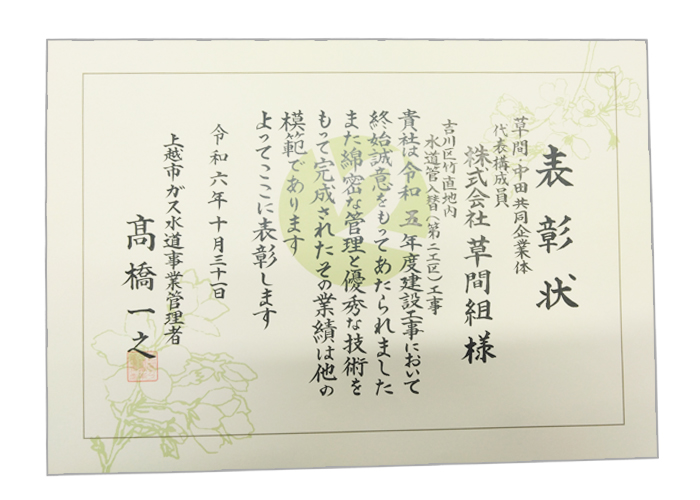 表彰状
草間・中田共同企業体
代表構成員
株式会社 草間組 様
吉川区竹直地内
水道管入替(第二工区)工事
貴社は令和五年度建設工事において
終始誠意をもってあたられました
また綿密な管理と優秀な技術を
もって完成されたその業績は他の
模範であります
よってここに表彰します
令和六年十月三十一日
上越市ガス水道事業管理者
髙橋一之